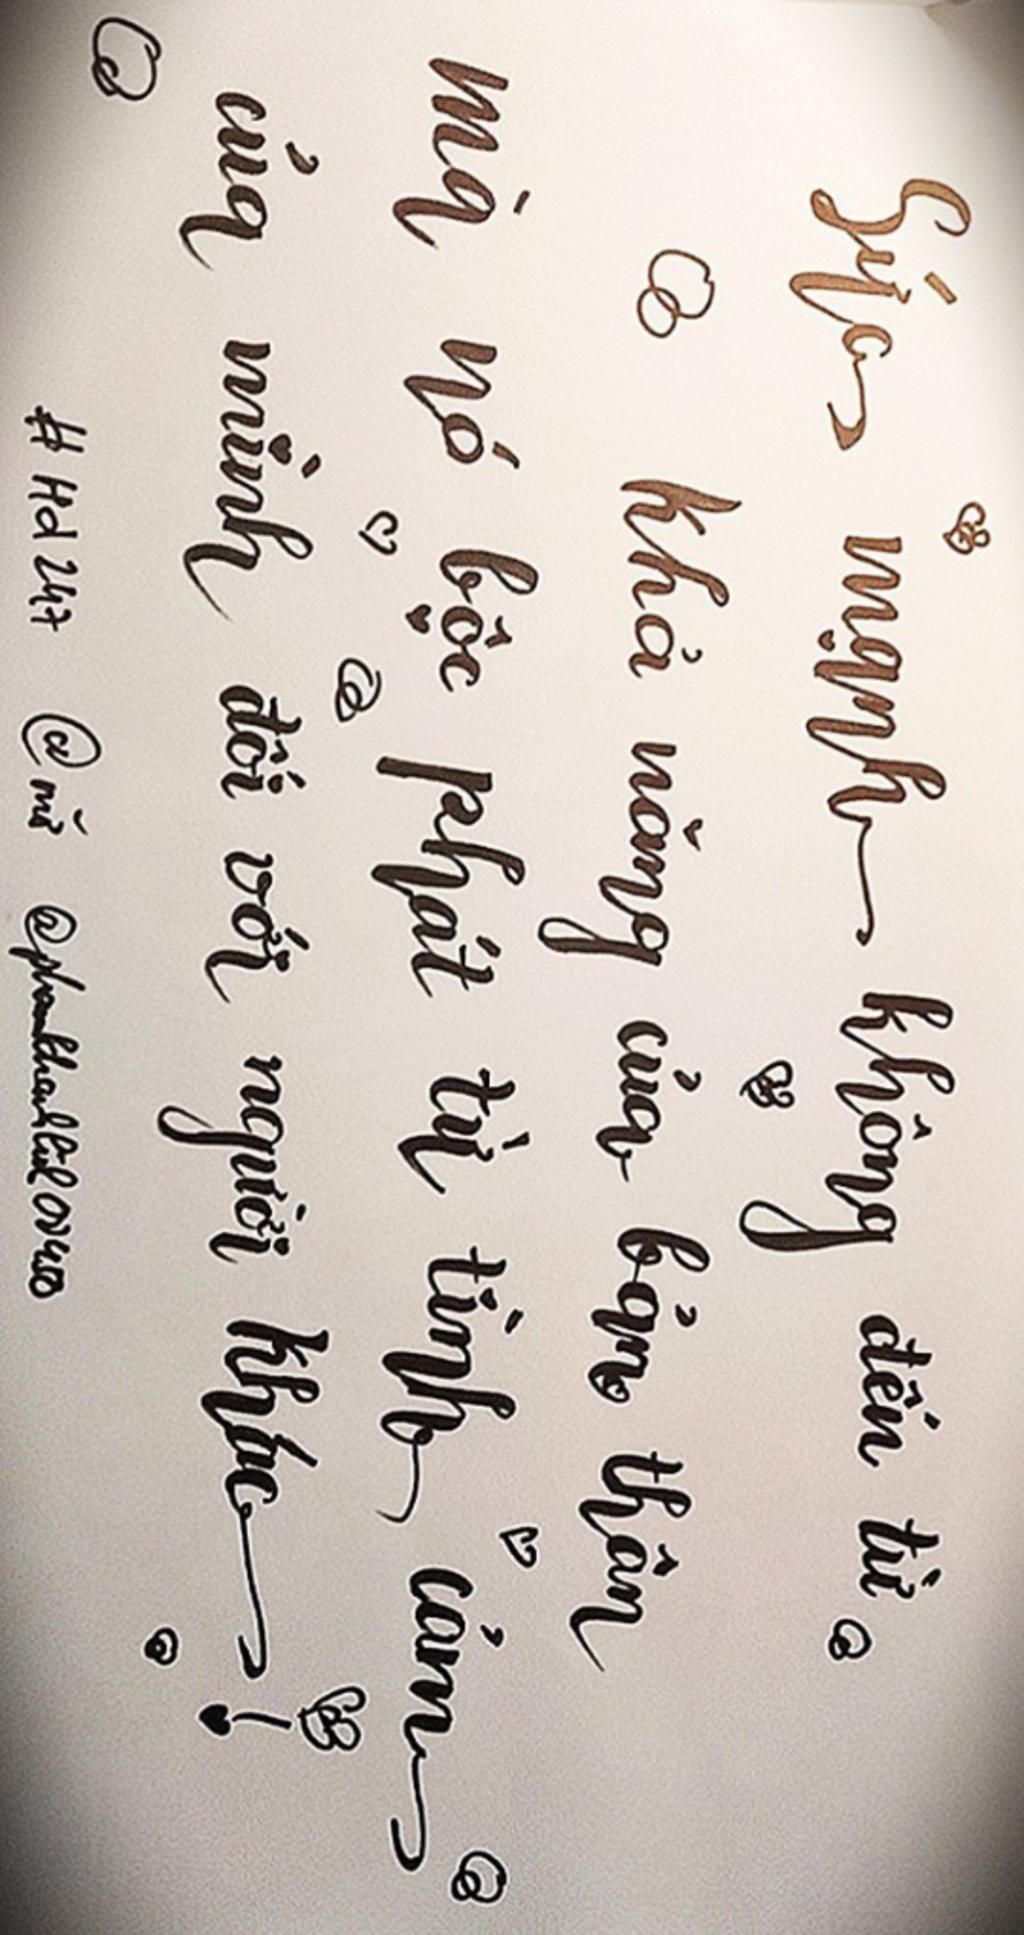 Sức mạnh không đến từ
khả năng của bản thân
mà nó bộc phát từ tình cảm
của mình đối với người khác!
#Hd247 @mũ